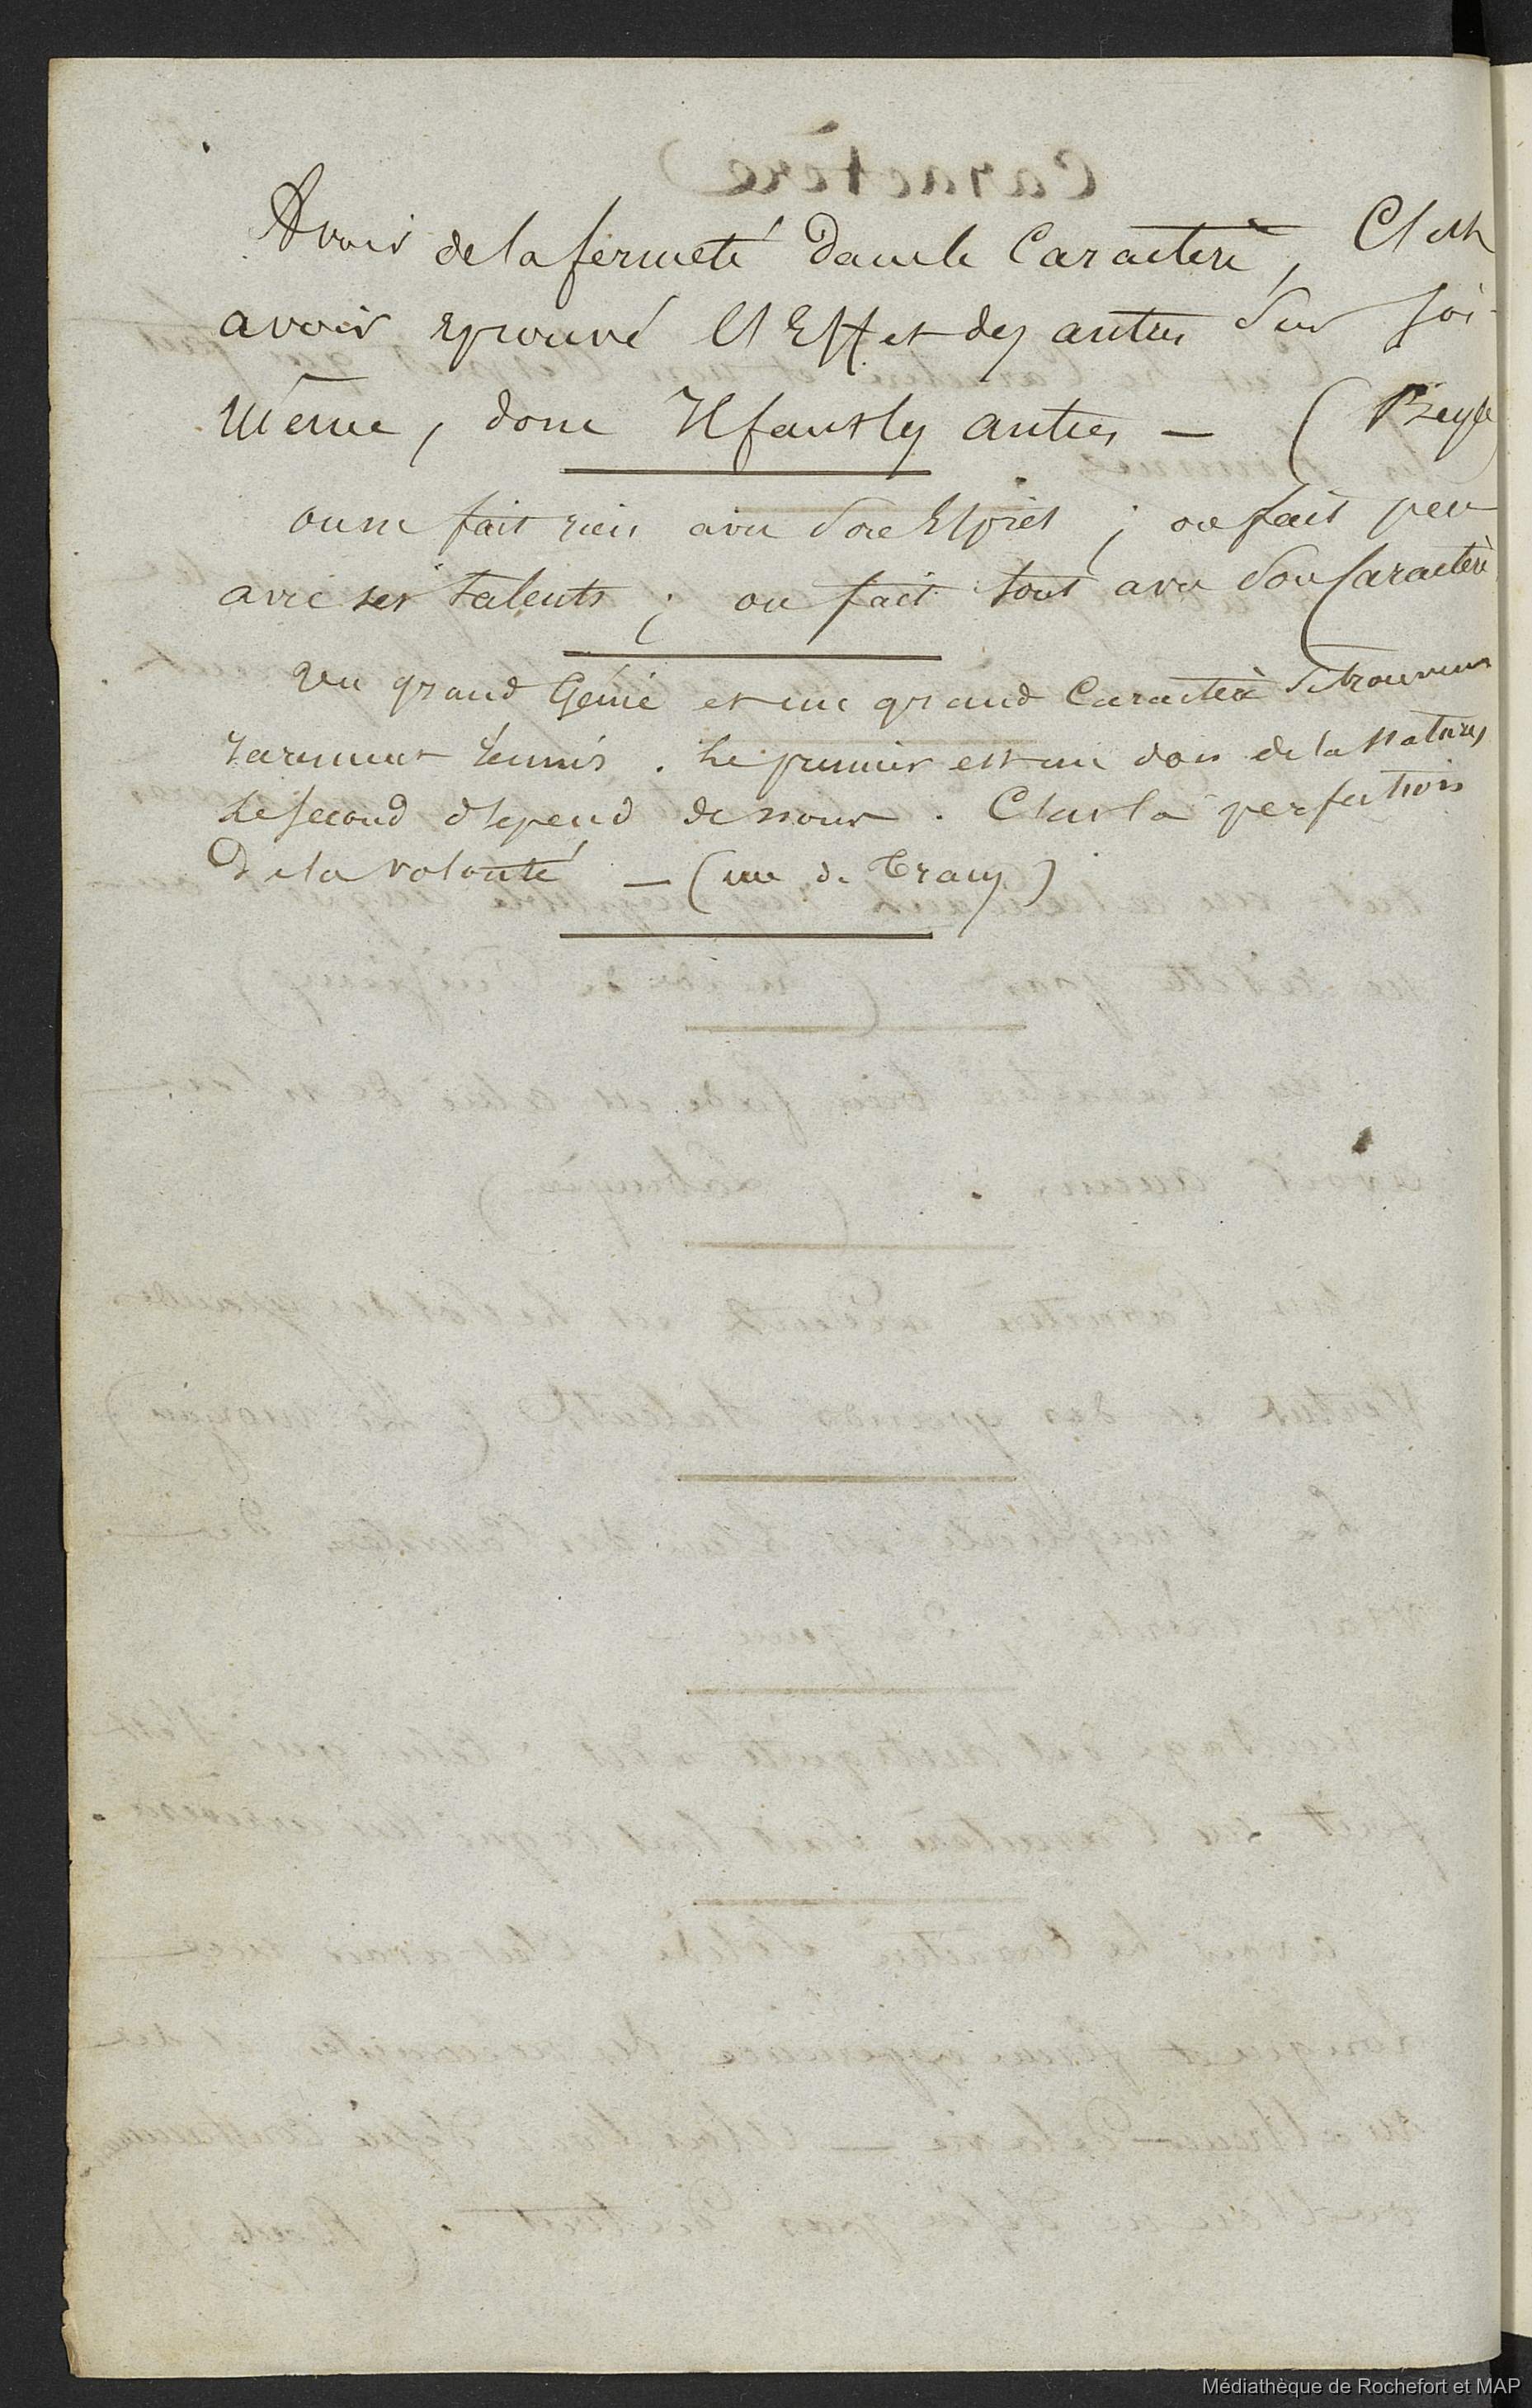 Avoir de la fermeté dans le Caractère, C'est
avoir eprouvé l'Effet des autres sur soi-
même, donc Il faut les autres — (Beyle)
on ne fait rien avec son Esprit ; on fait peu
avec ses talents ; on fait tout avec son Caractère
un grand Génie et un grand Caractère se trouvent
rarement réunis . Le premier est un don de la Nature,
Le second dépend de nous . C'est la perfection
De la volonté — (me de Tracy)
Médiathèque de Rochefort et MAP